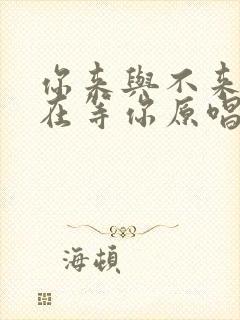 你来與不来
在等你原唱
海頓